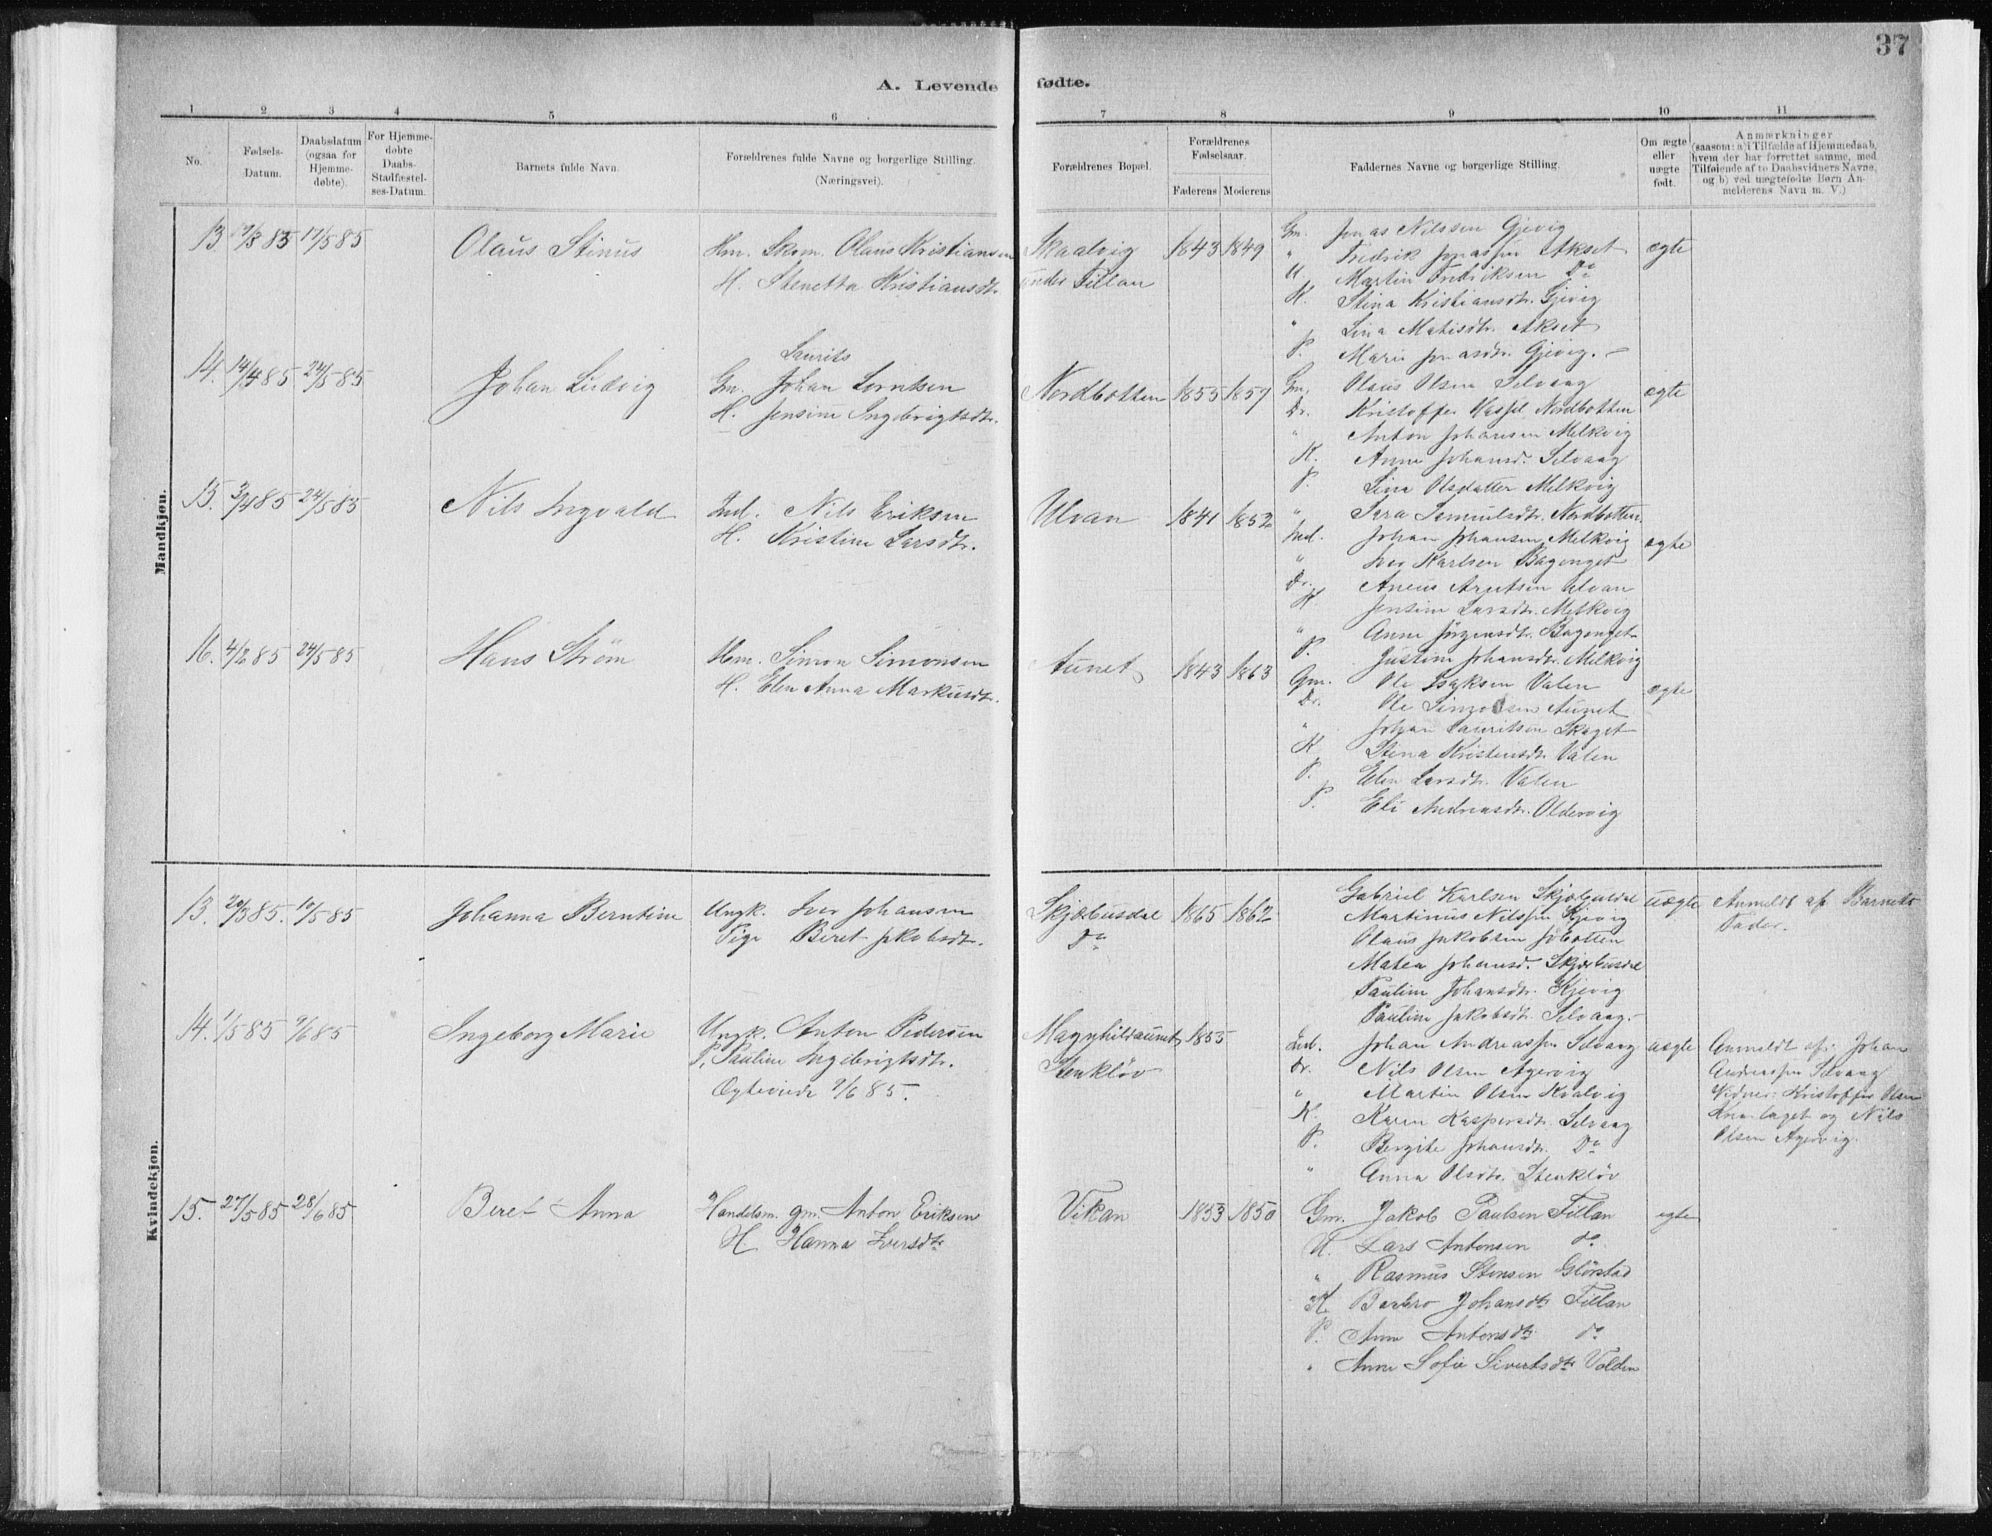 37
A. Levende fødte.
1 2 3 4 5 6 7 8 9 10 11
No.
Fødsels-Datum.
Daabsdatum (ogsaa for Hjemme-døbte).
For Hjemme-døbte Daabs-Stadfæstel-ses-Datum.
Barnets fulde Navn.
Forældrenes fulde Navne og borgerlige Stilling.
(Næringsvei).
Forældrenes Bopæl.
Forældrenes Fødselsaar.
Faderens Moderens
Faddernes Navne og borgerlige Stilling.
Om ægte eller uægte født.
Anmærkninger
(saasom: a) i Tilfælde af Hjemmedaab,
hvem der har forrettet samme, med
Tilføiende af to Daabsvidners Navne,
og b) ved uægtefødte Børn An-
melderens Navn m. V.)
Mandkjøn.
13 19/3 85 17/5 85 Olaus Stinus
Hm. Skom. Olaus Kristiansen
H. Stenetta Kristiansdtr.
Skaalvig
under Fillan
1843 1849
Gm. Jonas Nilssen Gjevig
" Fredrik Jonassen Akset
U. Martin Fredriksen Do
K. Stina Kristiansdtr. Gjevig
" Lina Matisdtr. Akset
P. Marie Jonasdtr. Gjevig.
ægte
14. 14/4 85 24/5 85 Johan Ludvig
Laurits
Gm. Johan Lorntsen
H. Jensine Ingebrigtsdtr.
Nordbotten 1855 1857
Gm. Olaus Olsen Selvaag
Dr. Kristoffer Nordbotten
" Anton Johansen Melkvig
K. Anne Johansd. Selvaag
P. Lina Olsdatter Melkvig
" Sara Samuelsdtr. Nordbotten
ægte
15. 3/4 85 24/5 85 Nils Ingvald
Ind. Nils Eriksen
H. Kristine Larsdtr.
Ulvan 1841 1852
Ind. Johan Johansen Melkvig
" Iver Karlsen Bagenget
Dr. Aneus Arntsen Ulvan
K. Jensine Larsdtr. Melkvig
" Anne Jørgensdtr. Bagenget
P. Justine Johansdtr. Melkvig
ægte
16. 4/2 85 24/5 85 Hans Strøm
Hm. Simon Simonsen
H. Elen Anna Markusdtr.
Aunet 1843 1863
Gm. Ole Isaksen Valen
Dr. Ole Simonsen Aunet
" Johan Lauritsen Skaget
K. Stina Kristensdtr. Valen
P. Elen Larsdtr. Valen
P. Eli Andreasdtr. Oldervig
ægte
Kvindekjøn.
13. 20/3 85. 10/5 85 Johanna Berntine
Ungk. Iver Johansen
Pige Beret Jakobsdtr.
Skjærbusdal
Do
1865 1862
Gabriel Karlsen Skjærbusdal
Martinus Nilssen Kjevig
Olaus Jakobsen Jøbotten
Matea Johansd. Skjærbusdal
Pauline Johansdtr. Kjevig
Pauline Jakobsdtr. Selvaag.
uægte
Anmeldt af Barnets
Fader.
14. 1/5 85 9/6 85 Ingeborg Marie
Ungk. Anton Pedersen
P. Pauline Ingebrigtsdtr.
Ægteviede 9/6 85.
Magnhildaunet
Stenkløv
1855
Ind. Johan Andreassen Selvaag
Dr. Nils Olsen Agervig
" Martin Olsen Kvalvig
K. Karen Kaspersdtr. Selvaag
P. Bergite Johansdtr. Do
" Anna Olsdtr. Stenkløv
uægte
Anmeldt af: Johan
Andreassen Selvaag
Vidner: Kristoffer Olsen
og Nils
Olsen Agervig.
15. 27/5 85 28/6 85 Beret Anna
Handelsm. gm. Anton Eriksen
H. Hanna Iversdtr
Vikan 1853 1850
Gm. Jakob Paulsen Fillan
U. Lars Antonsen do
" Rasmus Stensen Glørstad
K. Barbro Johansdtr Fillan
P. Anne Antonsdtr do
" Anne Sofie Sivertsdtr Volden
ægte